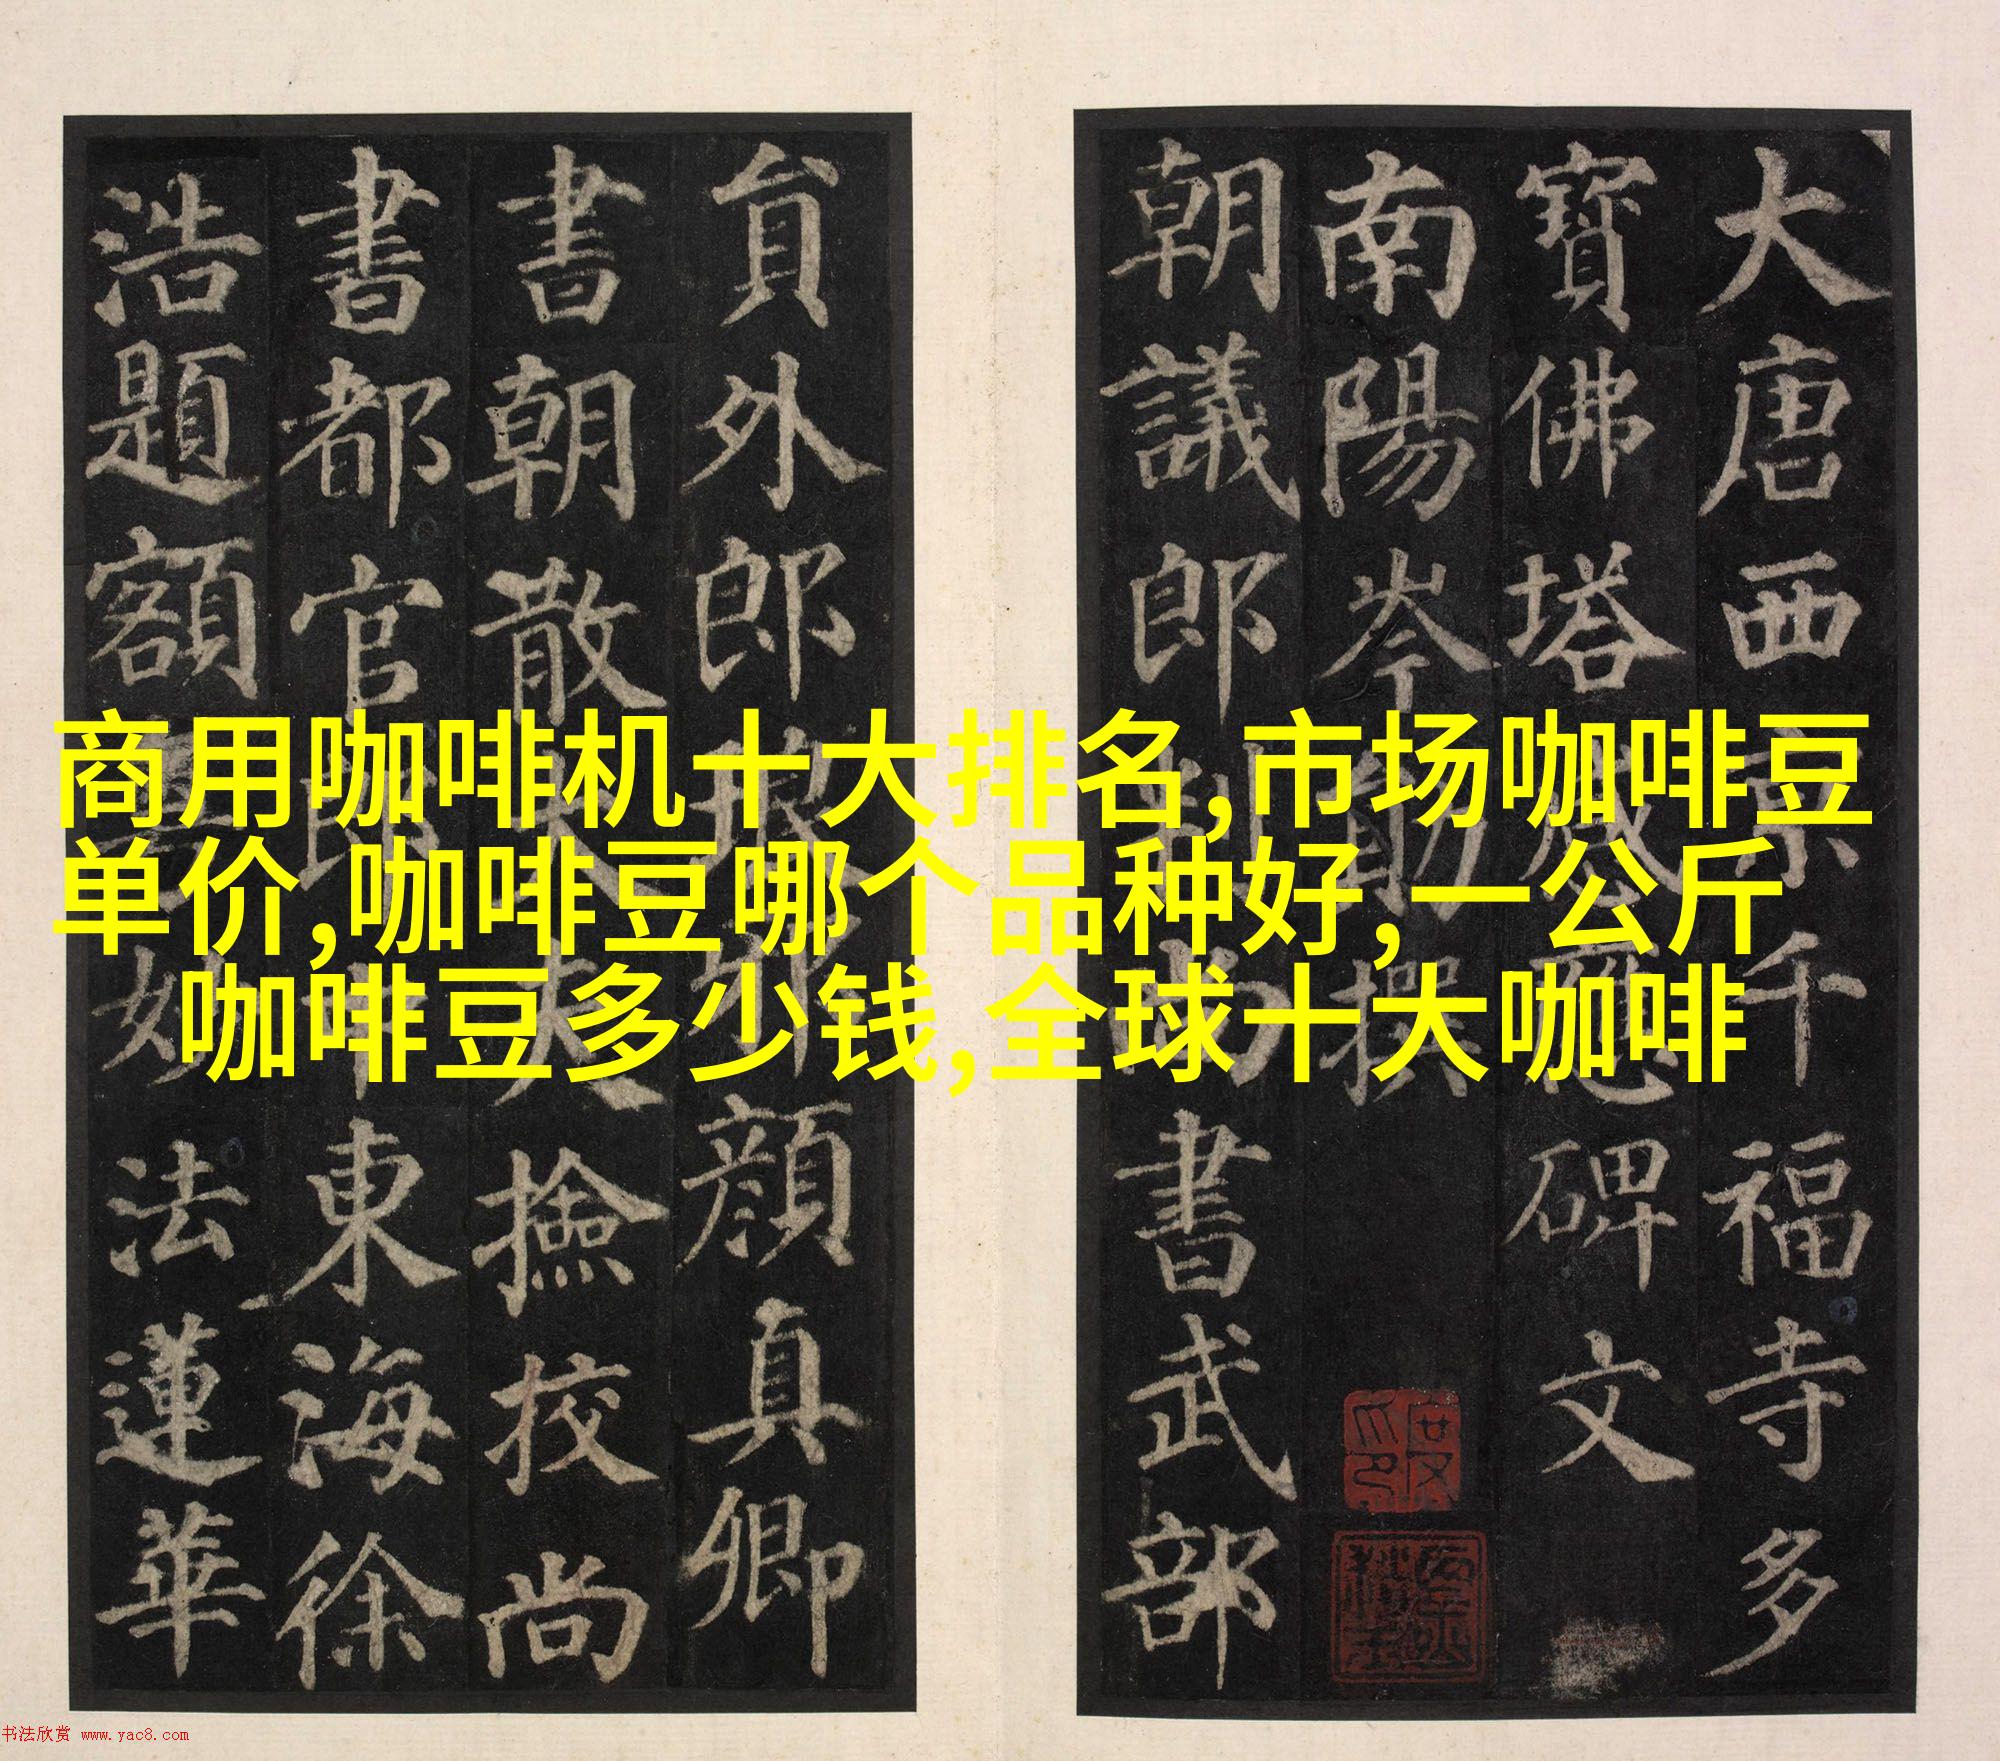 大唐西京千福寺多
寶佛塔感應碑文
南陽岑勛撰
朝議郎判尚書武部
貟外郎琅邪顏真卿
書朝散大夫撿挍尚
書都官郎中東海徐
浩題額粵妙法蓮華
商用咖啡机十大排名,市场咖啡豆
单价,咖啡豆哪个品种好,一公斤
咖啡豆多少钱,全球十大咖啡
书法欣赏 www.yac8.com